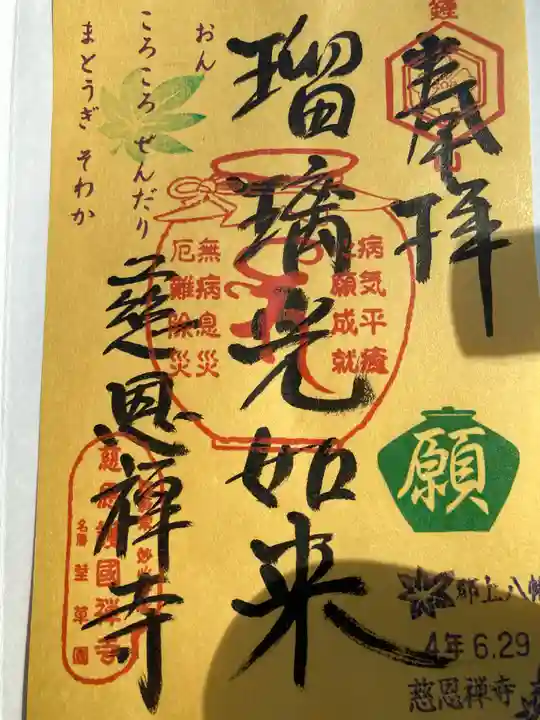 奉拝
瑠璃光如来
慈恩禅寺
おん
ころころ せんだり
まとうぎ そわか
病気平癒
心願成就
無病息災
厄難除災
願
郡上八幡
4年6.29
慈恩禅寺
慈恩護國禅寺
名勝 荎草園